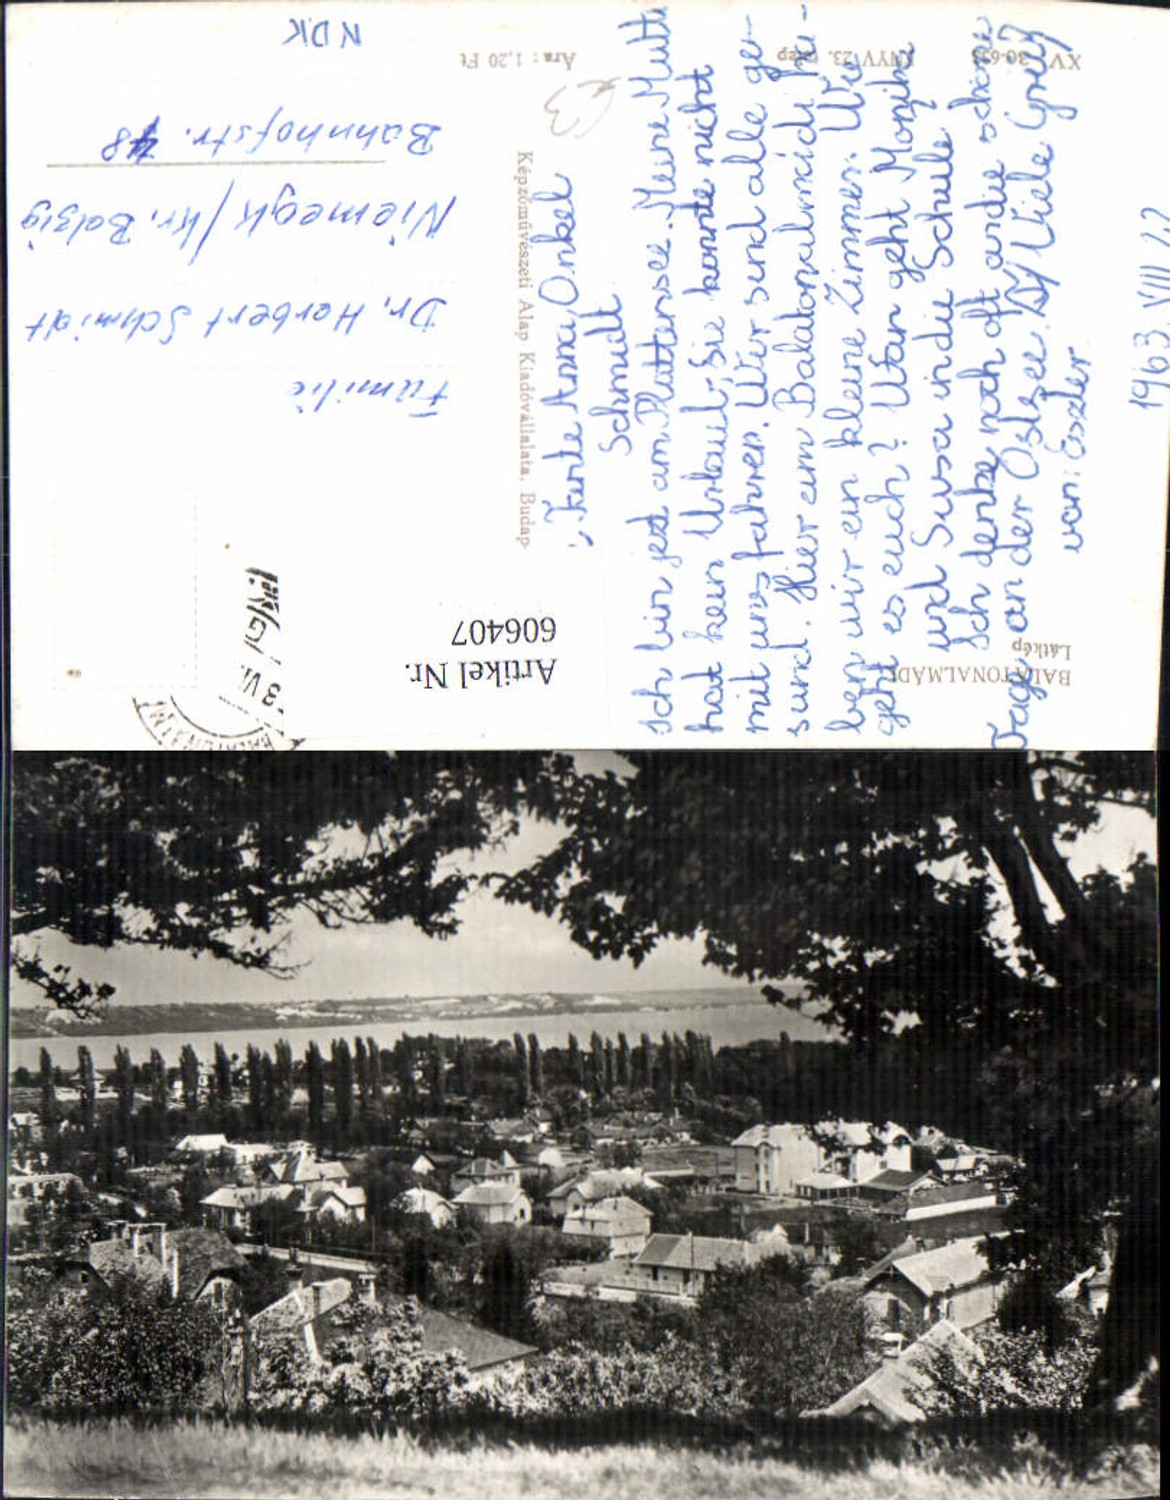 BALATONALMÁDI
Látkép
XV
Ára : 1,20 Ft
Képzőművészeti Alap Kiadóvállalata, Budap
Artikel Nr.
606407
Tante Anna, Onkel
Schmidt
Ich bin jezt am Plattensee. Meine Mutti
hat kein Urlaub, Sie konnte nicht
mit uns fahren. Wir sind alle ge-
sund. Hier um Balatonalmádi ha-
ben wir ein kleine Zimmer. Wie
geht es euch? Wan geht Monika
und Susa in die Schule
Ich denke noch oft an die schöne
Tage an der Ostsee. Viele Grüß
von: Eszter
1963 VIII 22
Familie
Dr. Herbert Schmidt
Niemegk / Kr. Belzig
Bahnhofstr. 48
NDK